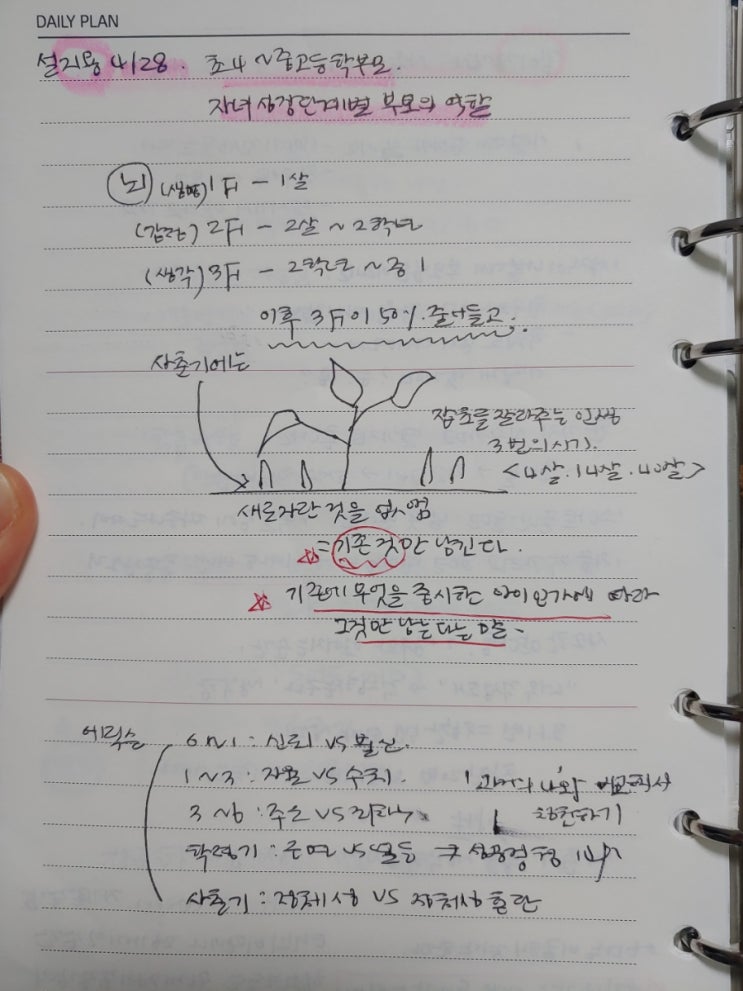 DAILY PLAN
4/28. 초4 ~ 중고등학부모.
자녀성장단계별 부모의 역할
뇌 (생명) 1F - 1살
(감정) 2F - 2살 ~ 2학년
(생각) 3F - 2학년 ~ 중1
이후 3F이 50% 줄어들고.
사춘기에는
잡초를 잘라주는 인생
3번의 시기.
<4살. 14살. 40살>
새로자란 것을 없앰
= 기존 것만 남긴다.
기존에 무엇을 중시한 아이인가에 따라
그것만 남는다는 말.
에릭슨
0~1 : 신뢰 vs 불신.
1~3 : 자율 vs 수치 과거의 나와 비교해서
3~6 : 주도 vs 죄책 칭찬하기
학령기 : 근면 vs 열등
사춘기 : 정체성 vs 정체성 혼란